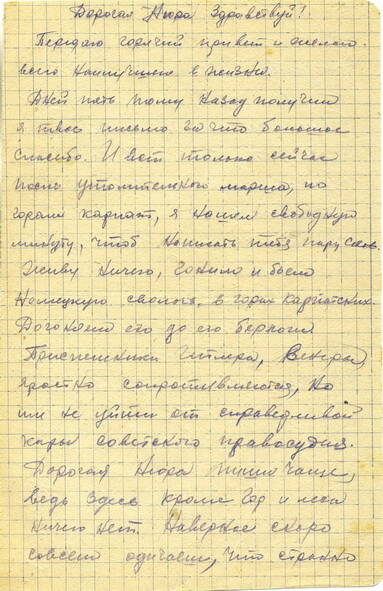 Дорогая Нюра Здравствуй!
Передаю горячий привет и желаю
всего наилучшего в жизни.
Дней пять тому назад получил
я твое письмо за что большое
спасибо. И вот только сейчас
после утомительного марша, по
горам карпат, я нашел свободную
минуту, чтоб написать тебе пару слов.
Живу ничего, гоним и бьем
Немецкую сволочь, в горах карпатских.
Догоняем его до его берлоги
Приспешники Гитлера, Венгры,
яростно сопротивляются, но
им не уйти от справедливой
кары советского правосудия.
Дорогая Нюра пиши чаще,
ведь здесь кроме гор и леса
ничего нет. Наверное скоро
совсем одичаем, что странно